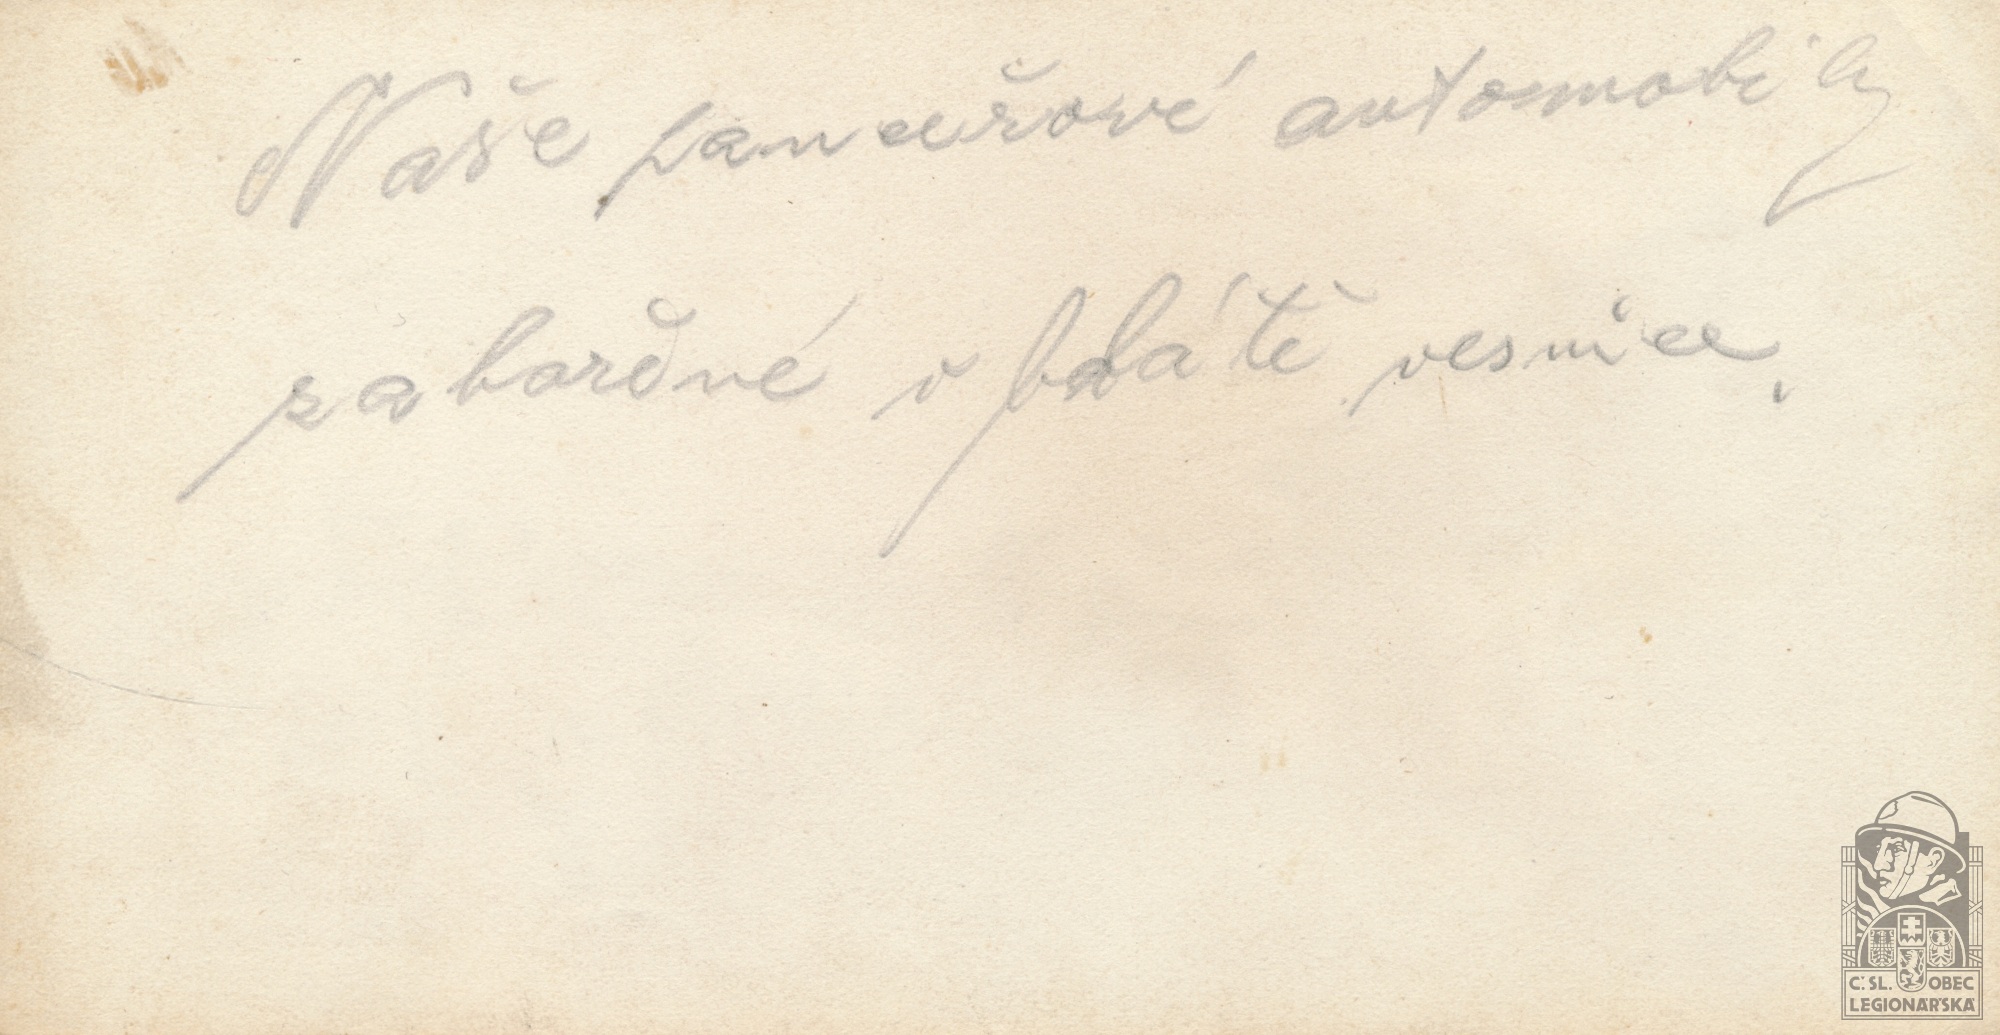 Naše panceřové automobily
zabořené v blátě vesnice.
Č.SL. OBEC
LEGIONÁŘSKÁ